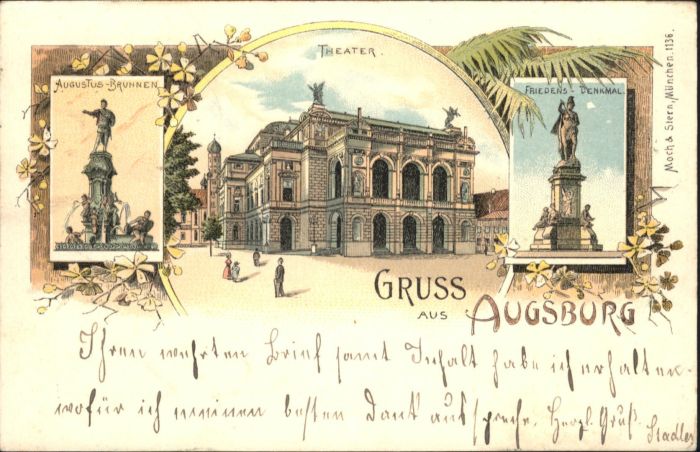 THEATER.
AUGUSTUS-BRUNNEN
FRIEDENS-DENKMAL.
Moch & Stern, München. 1136.
GRUSS
AUS AUGSBURG
Ihren wehrten Brief samt Inhalt habe ich erhalten.
wofür ich meinen besten Dank ausspreche. Herzl. Gruß
Stadler